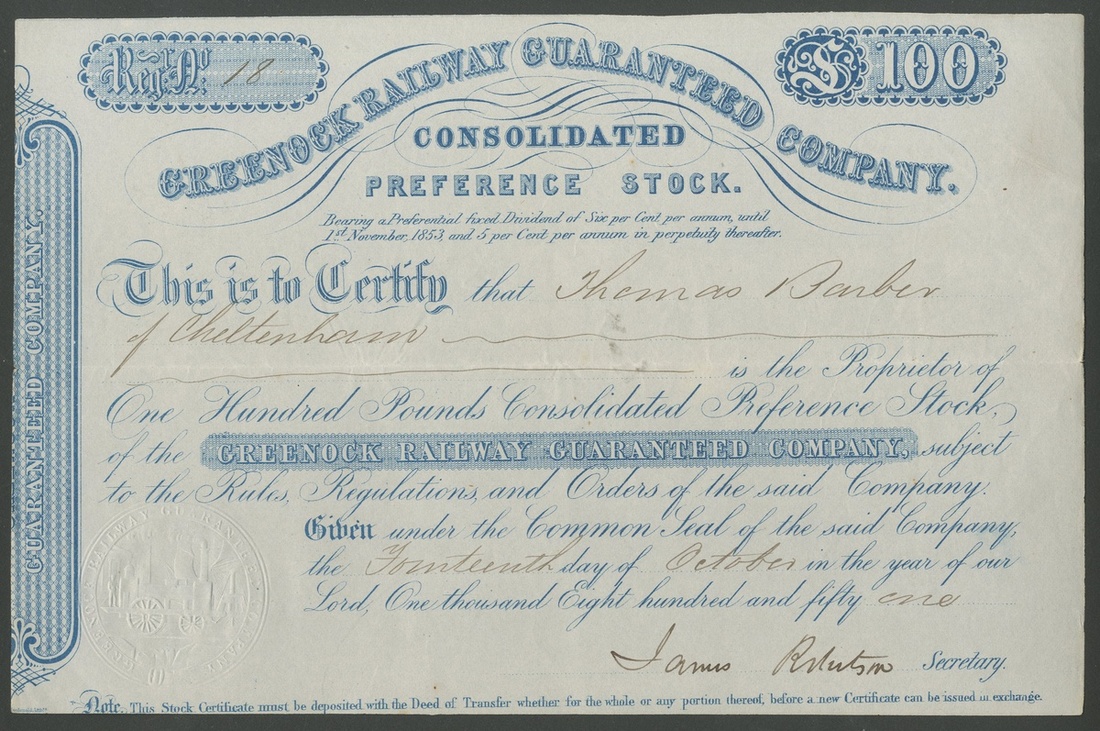 Regr. No. 18
£ 100
GREENOCK RAILWAY GUARANTEED COMPANY.
CONSOLIDATED
PREFERENCE STOCK.
Bearing a Preferential fixed Dividend of Six per Cent per annum, until
1st November, 1853, and 5 per Cent per annum in perpetuity thereafter.
This is to Certify that Thomas Barber
of Cheltenham
is the Proprietor of
One Hundred Pounds Consolidated Preference Stock,
of the GREENOCK RAILWAY GUARANTEED COMPANY, subject
to the Rules, Regulations, and Orders of the said Company.
Given under the Common Seal of the said Company,
the Fourteenth day of October in the year of our
Lord, One thousand Eight hundred and fifty one
James Robertson Secretary.
Note. This Stock Certificate must be deposited with the Deed of Transfer whether for the whole or any portion thereof, before a new Certificate can be issued in exchange.
GUARANTEED COMPANY.
GREENOCK RAILWAY GUARANTEED COMPANY